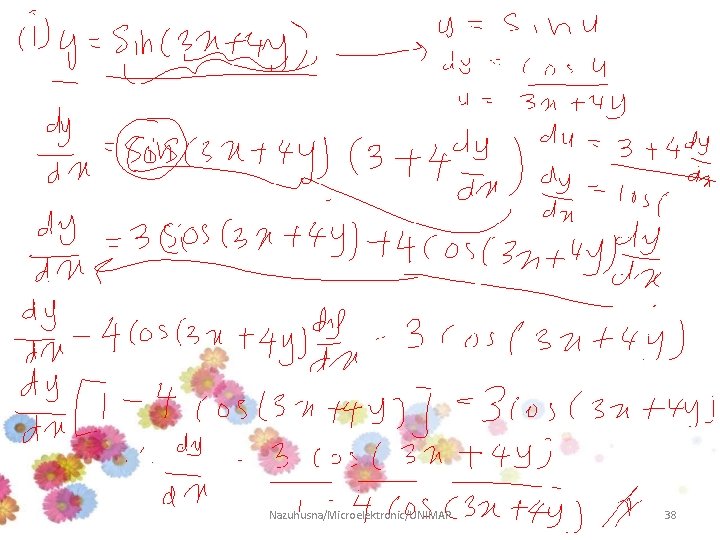 (i) y = sin(3x+4y) → y = sin u
dy = cos u
u = 3x + 4y
dy/dx = cos(3x+4y) (3+4 dy/dx) du = 3 + 4 dy/dx
dy/dx = cos(
dy/dx = 3cos(3x+4y)+4cos(3x+4y) dy/dx
dy/dx - 4cos(3x+4y) dy/dx = 3cos(3x+4y)
dy/dx [1 - 4cos(3x+4y)] = 3cos(3x+4y)
∴ dy/dx = 3cos(3x+4y) / 1 - 4cos(3x+4y)
Nazuhusna/Microelektronic/UNIMAP 38